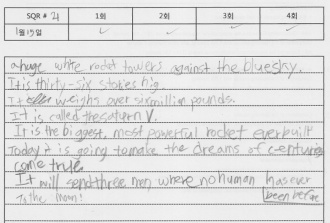 SQR # 21 1회 2회 3회 4회
1월 15일
a huge white rocket towers against the blue sky.
It is thirty-six stories hig.
It weighs over six million pounds.
It is called the saturn V.
It is the biggest, most powerful rocket ever built
Today it is going to make the dreams of centuries
come true.
It will send three men where no human has ever
been before
To the moon!